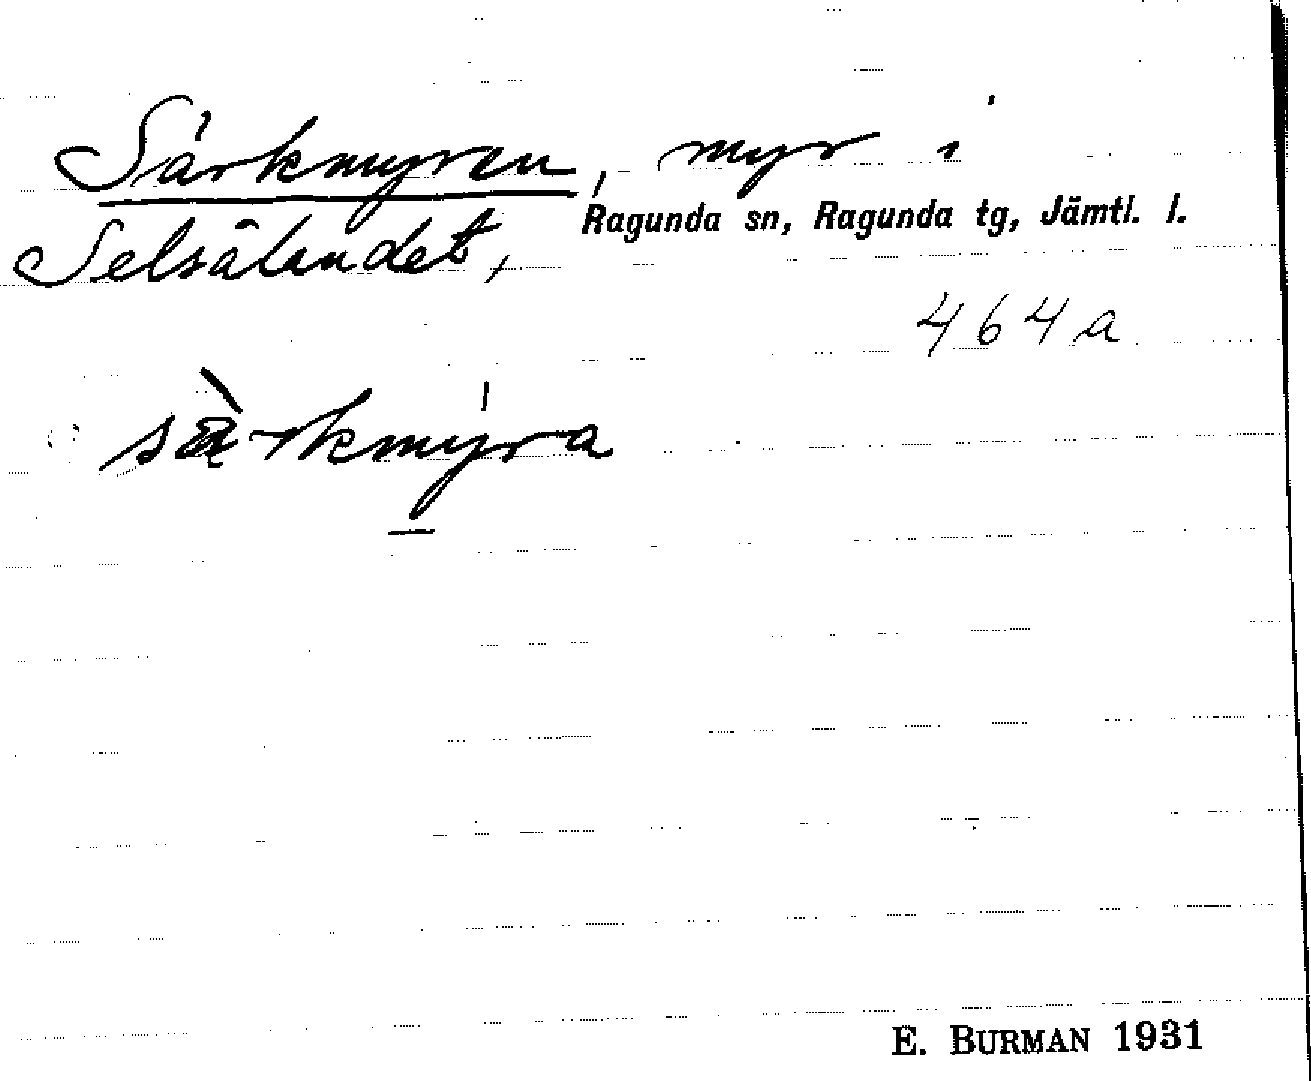 Särkmyren, myr i
Selsålandet, Ragunda sn, Ragunda tg, Jämtl. l.
464a
E. BURMAN 1931